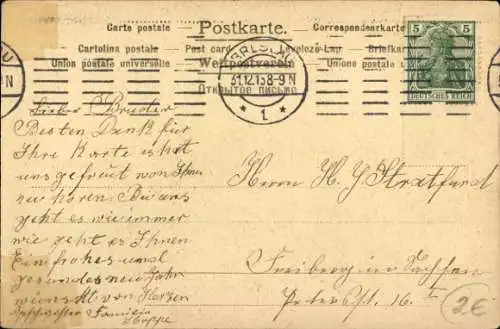 Carte postale Postkarte. Correspondenzkarte
Cartolina postale Post card Levelező-Lap Briefkaart
Union postale universelle Weltpostverein Union postale
Открытое письмо
BRESLAU
31.12.13.8-9N
* 1 *
5 5
DEUTSCHES REICH
AU
N
Lieber Bruder
Besten Dank für
Ihre Karte es hat
uns gefreut von Ihnen
zu hören. Bei uns
geht es wie immer
wie geht es Ihnen
Ein frohes und
gesundes neu Jahr
wünscht von Herzen
Schwester Familie
Hoppe
Herrn H. J Stratfurd
Freiberg in Sachsen
Petersstr. 16. I
2€